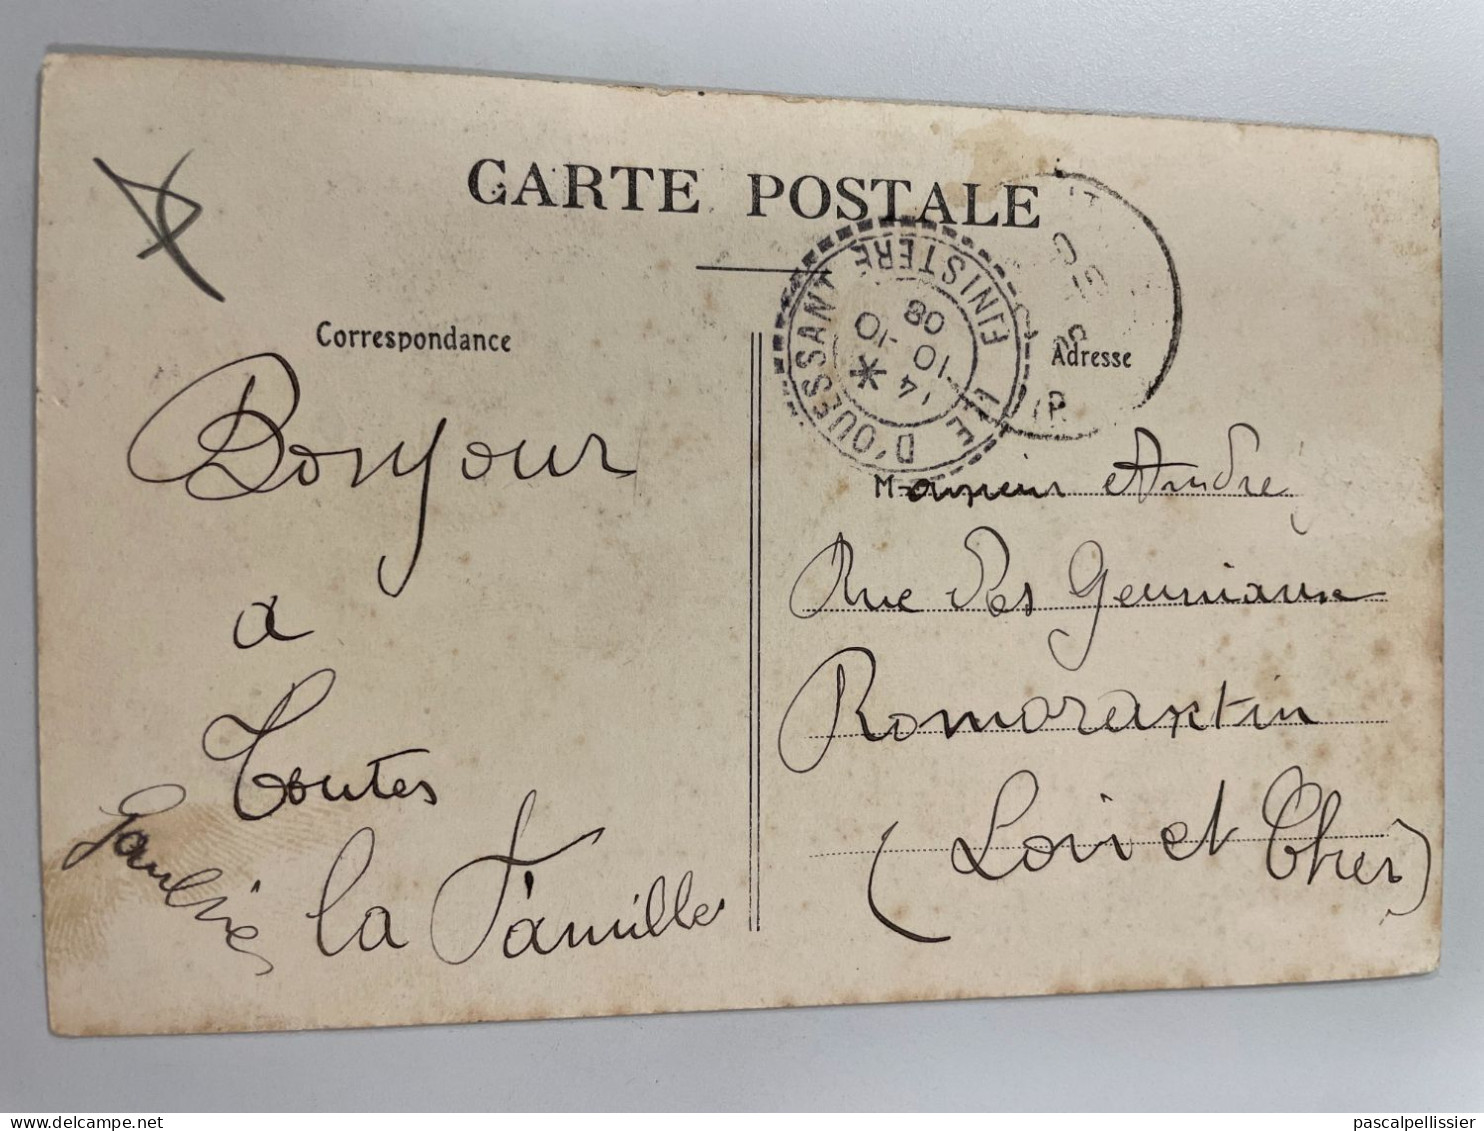 CARTE POSTALE
Correspondance
Adresse
ILE D'OUESSANT FINISTERE
14
10 -10
08
Bonjour
a
toutes
la Famille
Monsieur André
Rue des
Romorantin
(Loir et Cher)
pascalpellissier